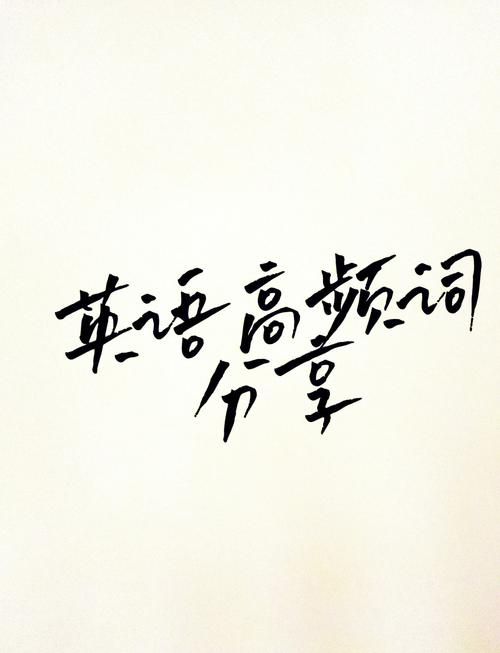 英语高频词
分享